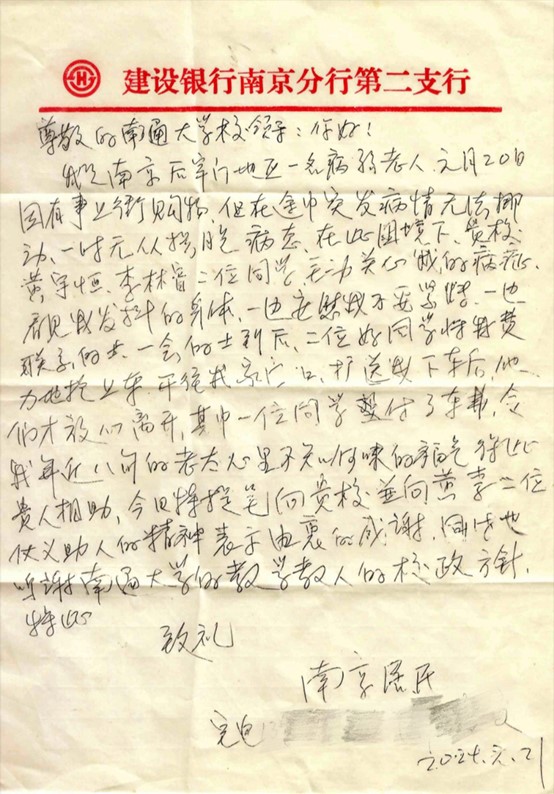 建设银行南京分行第二支行
尊敬的南通大学校领导：你好！
我是南京后宰门地区一名病弱老人，元月20日
因有事上街购物，但在途中突发病情无法挪
动，一时无从摆脱病态，在此困境下，贵校
黄宇恒、李林 二位同学，主动关心我的病症，
看见我发抖的身体，一边安慰我不要害怕，一边
联系的士，一会的士到后，二位好同学特别费
力地抱上车，平稳我家门口，护送我下车后，他
们才放心离开，其中一位同学垫付了车费，令
我年近八旬的老太心里不知何味的福气得此
贵人相助，今日特提笔向贵校并向黄李二位
仗义助人的精神表示由衷的感谢，同时也
感谢南通大学的教学教人的校政方针，
特此
致礼
南京居民
宅电
2024.元.21